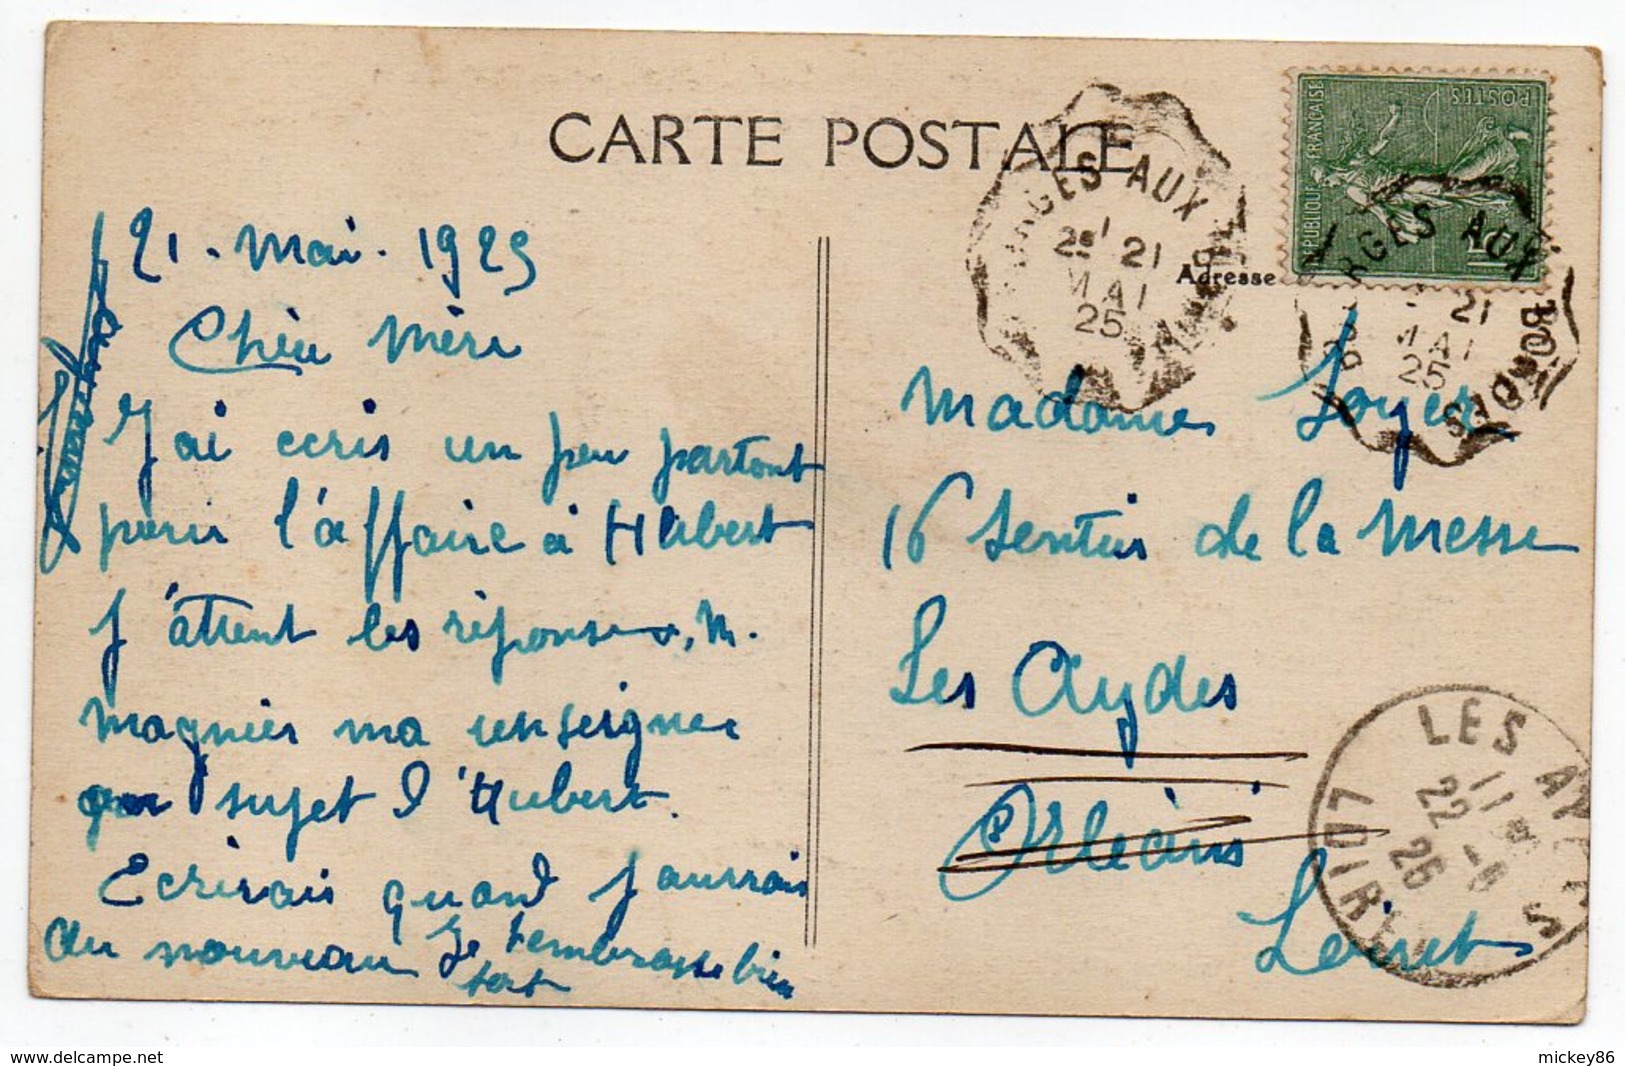 CARTE POSTALE
21. Mai. 1925
Chèu Mère
J'ai ecris un peu partout
pour l'affaire à Hubert
j'attent les réponses, M.
Magnier ma renseigner
sujet d'Hubert.
Ecrirais quand j'aurrais
du nouveau Je t'embrasse bien
fort
Adresse
Madame Loyer
16 Sentier de la Messe
Les Aydes
Orléans
Loiret
POSTES
REPUBLIQUE FRANÇAISE
RGES AUX
21
MAI
25
RGES AUX BORDES
21
MAI
25
LES AYDES
22 - 5
25
LOIRET
delcampe.net
mickey86